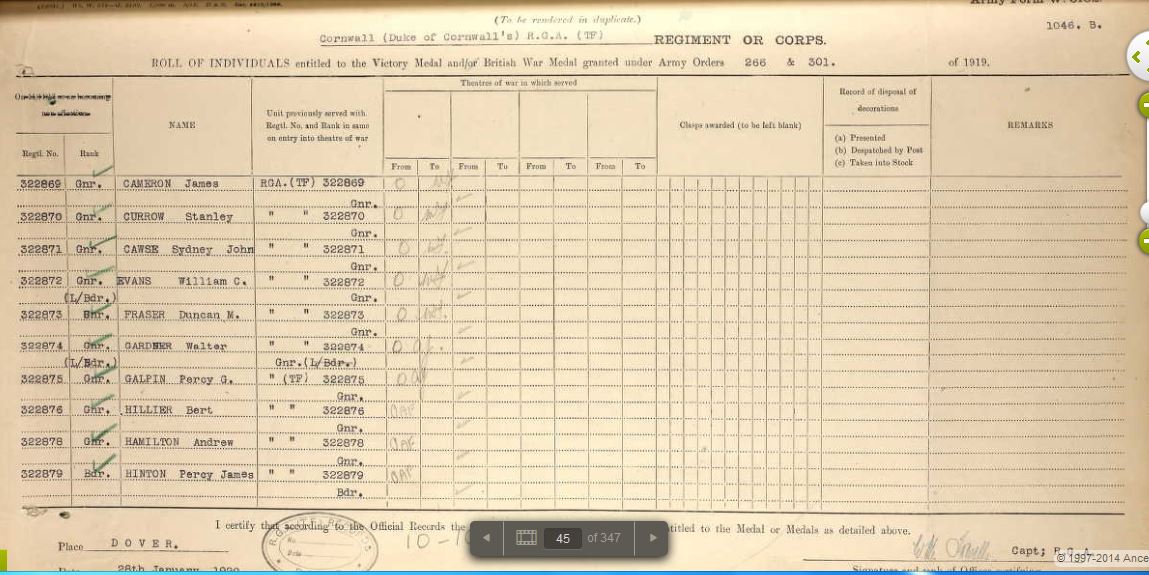 (To be rendered in duplicate.)
1046. B.
Cornwall (Duke of Cornwall's) R.G.A. (TF) REGIMENT OR CORPS.
ROLL OF INDIVIDUALS entitled to the Victory Medal and/or British War Medal granted under Army Orders 266 & 301. of 1919.
Theatres of war in which served
Record of disposal of decorations
NAME
Unit previously served with. Regtl. No. and Rank in same on entry into theatre of war
Clasps awarded (to be left blank)
(a) Presented
(b) Despatched by Post
(c) Taken into Stock
REMARKS
Regtl. No. Rank
From To From To From To From To
322869 Gnr. CAMERON James RGA.(TF) 322869
Gnr.
322870 Gnr. CURROW Stanley " " 322870
Gnr.
322871 Gnr. CAWSE Sydney John " " 322871
Gnr.
322872 Gnr. EVANS William C. " " 322872
(L/Bdr.) Gnr.
322873 FRASER Duncan M. " " 322873
Gnr.
322874 Gnr. GARDNER Walter " " 322874
(L/Bdr.) Gnr.(L/Bdr.)
322875 Gnr. GALPIN Percy G. " (TF) 322875
Gnr.
322876 Gnr. HILLIER Bert " " 322876
Gnr.
322878 Gnr. HAMILTON Andrew " " 322878
Gnr.
322879 Bdr. HINTON Percy James " " 322879
Bdr.
I certify that according to the Official Records the
titled to the Medal or Medals as detailed above.
45 of 347
Place DOVER.
Capt; R.G.A.
28th January,
© 1997-2014 Ance